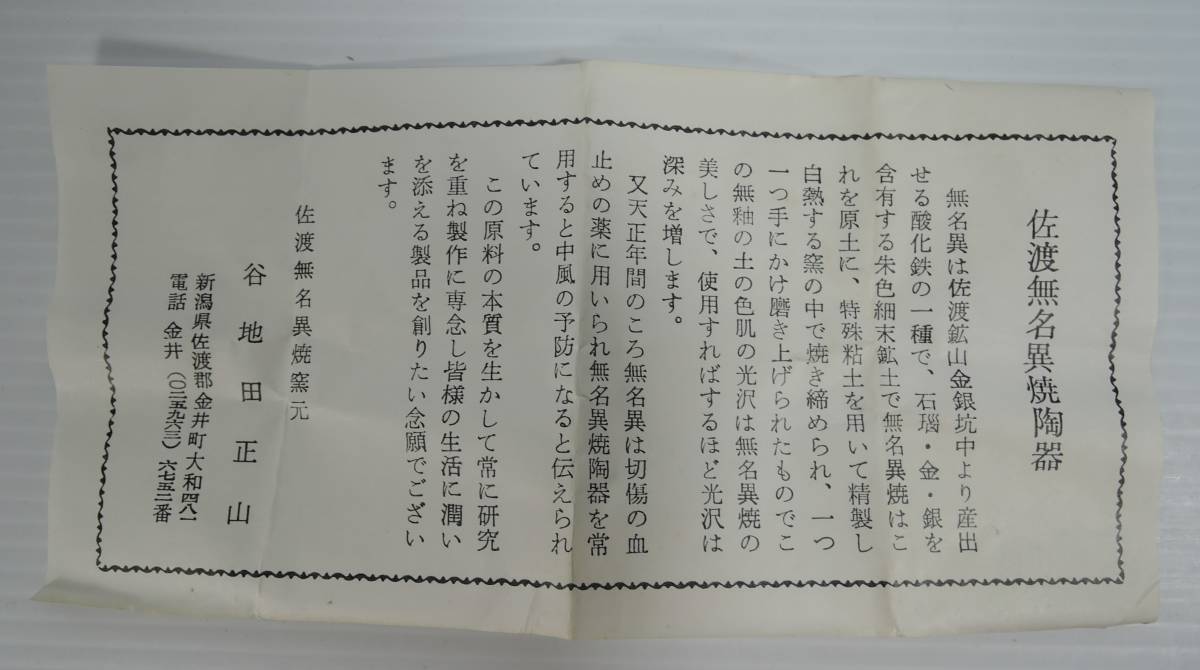 佐渡無名異焼陶器
無名異は佐渡鉱山金銀坑中より産出
せる酸化鉄の一種で、石瑙・金・銀を
含有する朱色細末鉱土で無名異焼はこ
れを原土に、特殊粘土を用いて精製し
白熱する窯の中で焼き締められ、一つ
一つ手にかけ磨き上げられたものでこ
の無釉の土の色肌の光沢は無名異焼の
美しさで、使用すればするほど光沢は
深みを増します。
又天正年間のころ無名異は切傷の血
止めの薬に用いられ無名異焼陶器を常
用すると中風の予防になると伝えられ
ています。
この原料の本質を生かして常に研究
を重ね製作に専念し皆様の生活に潤い
を添える製品を創りたい念願でござい
ます。
佐渡無名異焼窯元
谷地田正山
新潟県佐渡郡金井町大和四八一
電話 金井(〇二五九六三)六七五二番